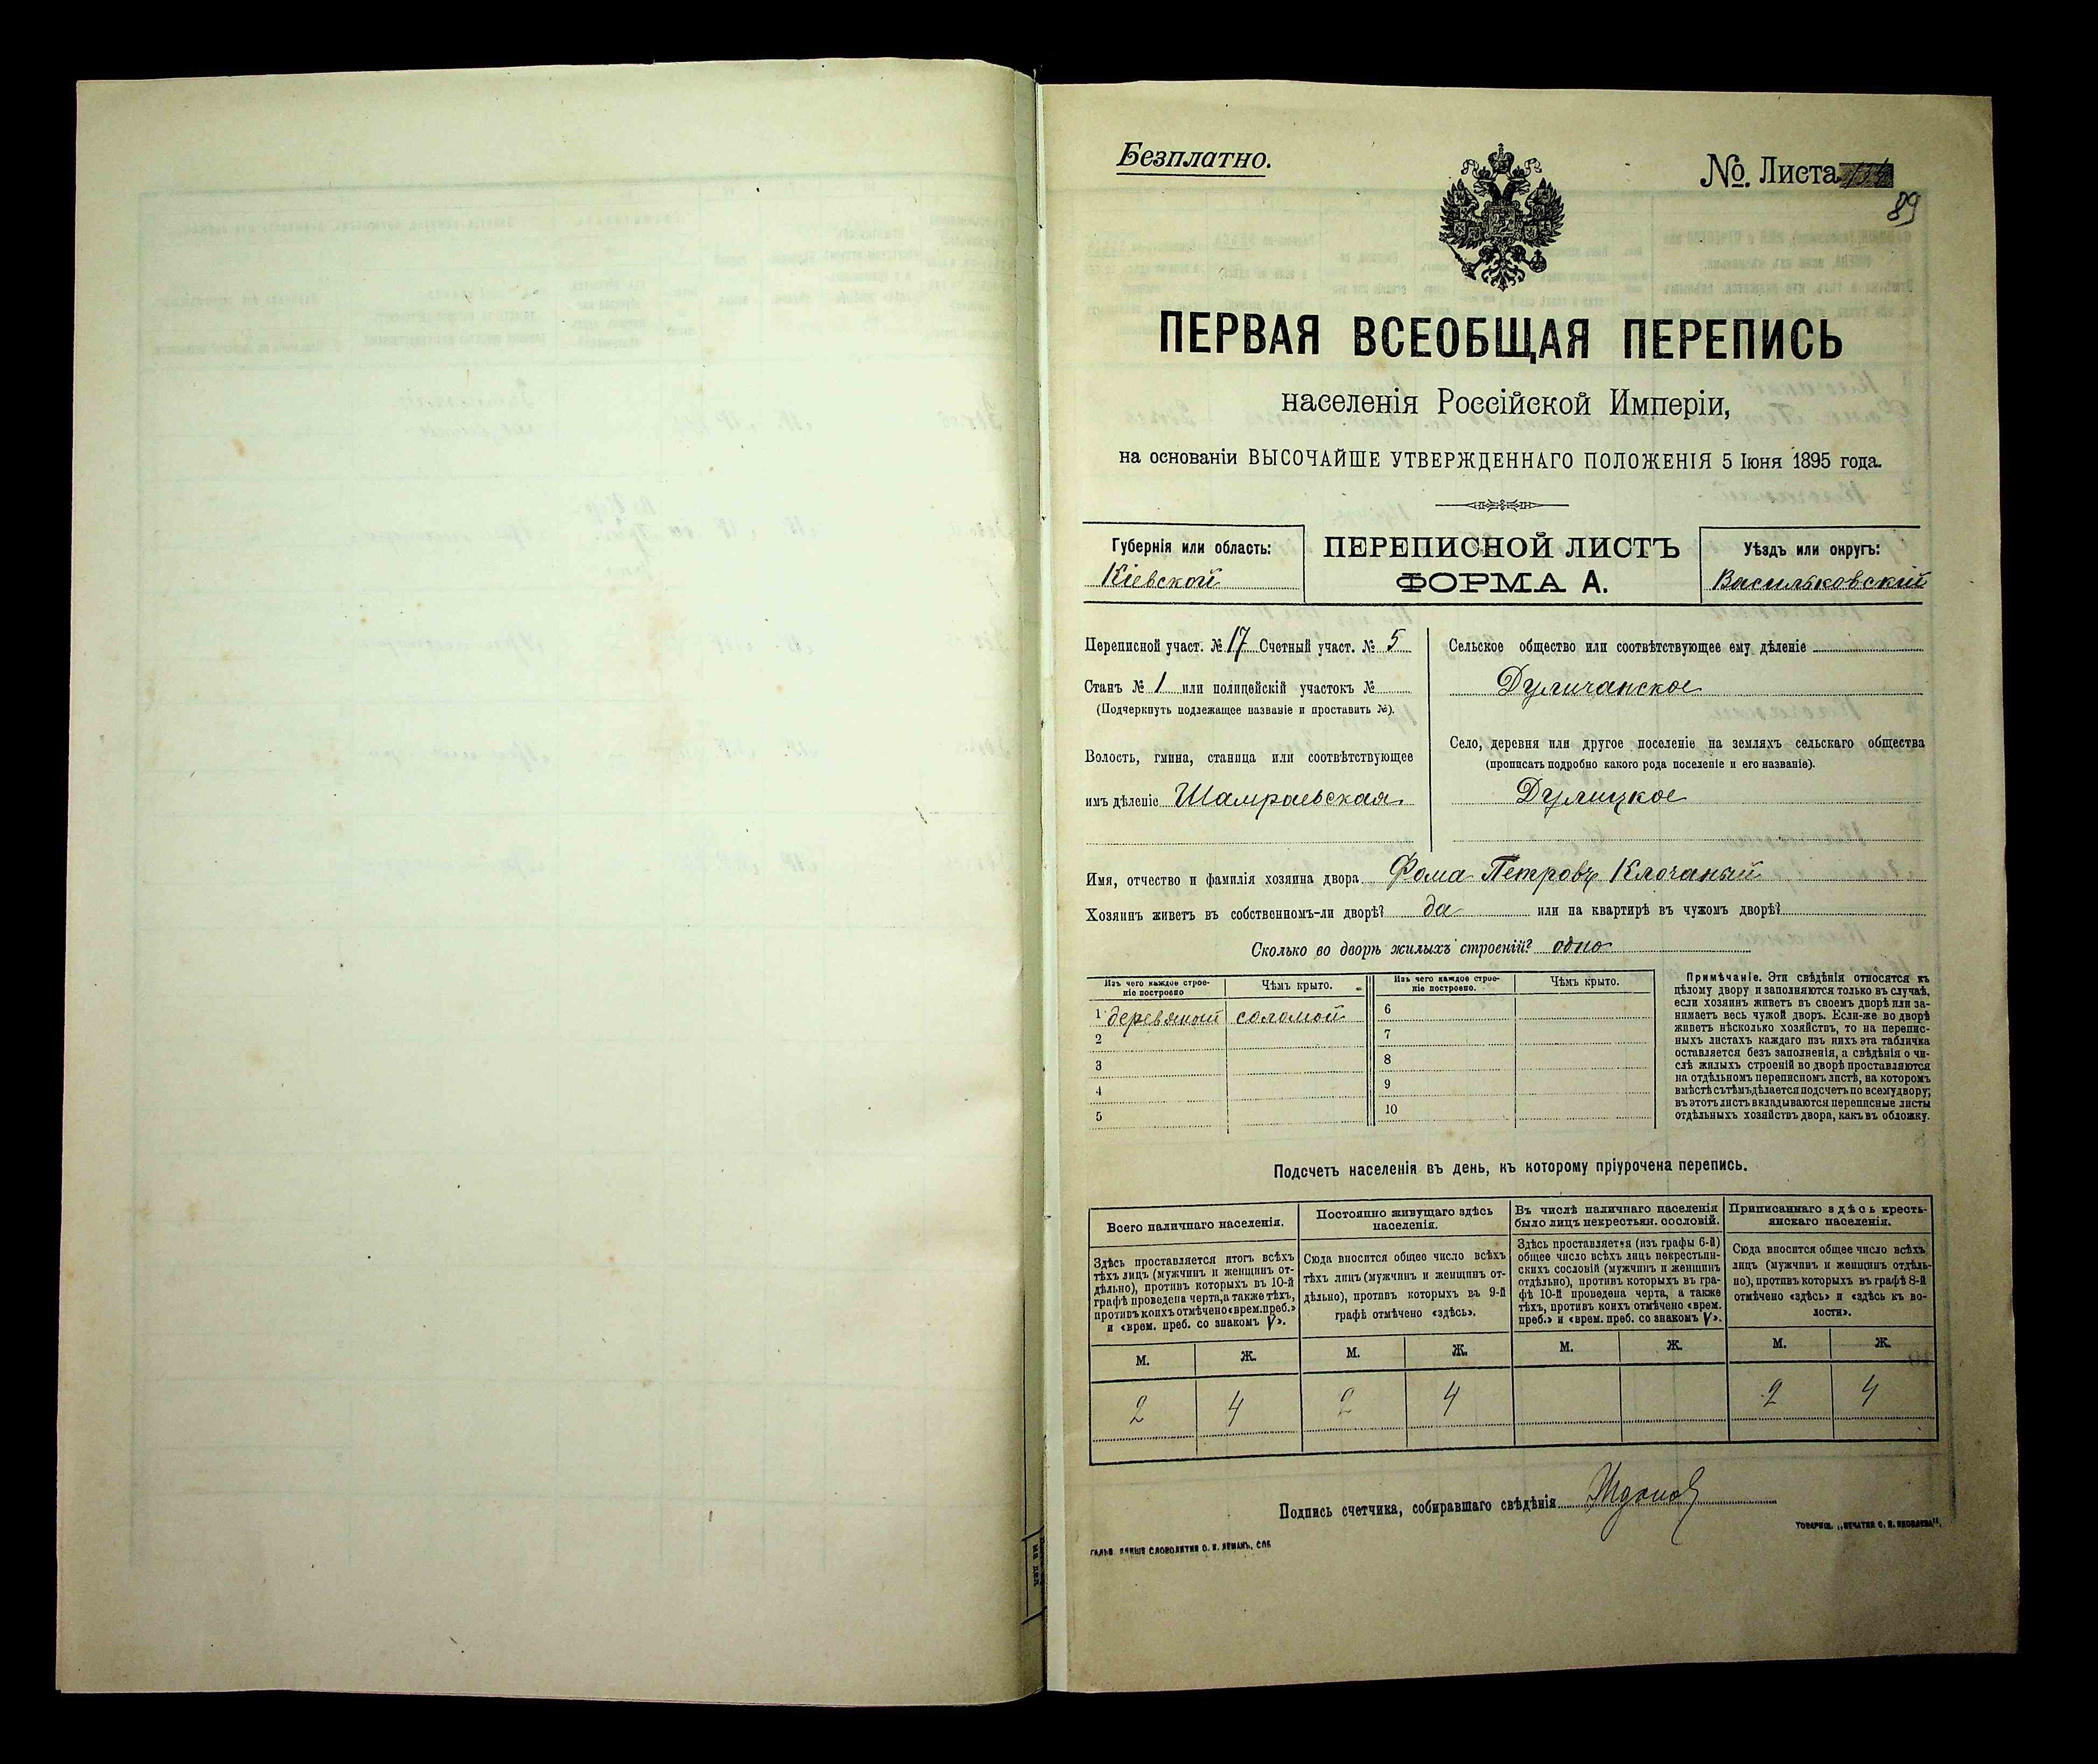 Безплатно.
№. Листа
89
ПЕРВАЯ ВСЕОБЩАЯ ПЕРЕПИСЬ
населенія Россійской Имперіи,
на основаніи ВЫСОЧАЙШЕ УТВЕРЖДЕННАГО ПОЛОЖЕНІЯ 5 Іюня 1895 года.
Губернія или область:
Кіевской
ПЕРЕПИСНОЙ ЛИСТЪ
ФОРМА А.
Уѣздъ или округъ:
Васильковскій
Переписной участ. № 17 Счетный участ. № 5
Станъ № 1 или полицейскій участокъ №
(Подчеркнуть подлежащее названіе и проставить №).
Волость, гмина, станица или соотвѣтствующее
имъ дѣленіе Шамраевская
Сельское общество или соотвѣтствующее ему дѣленіе
Дуличанское
Село, деревня или другое поселеніе на земляхъ сельскаго общества
(прописать подробно какого рода поселеніе и его названіе).
Дулицкое
Имя, отчество и фамилія хозяина двора Фома Петровъ Клочаный
Хозяинъ живетъ въ собственномъ-ли дворѣ? да или на квартирѣ въ чужомъ дворѣ?
Сколько во дворѣ жилыхъ строеній? одно
Изъ чего каждое строе-
ніе построено
Чѣмъ крыто.
1 деревяной соломой
2
3
4
5
Изъ чего каждое строе-
ніе построено.
Чѣмъ крыто.
6
7
8
9
10
Примѣчаніе. Эти свѣдѣнія относятся къ
цѣлому двору и заполняются только въ случаѣ,
если хозяинъ живетъ въ своемъ дворѣ или за-
нимаетъ весь чужой дворъ. Если-же во дворѣ
живетъ нѣсколько хозяйствъ, то на перепис-
ныхъ листахъ каждаго изъ нихъ эта табличка
оставляется безъ заполненія, а свѣдѣнія о чи-
слѣ жилыхъ строеній во дворѣ проставляются
на отдѣльномъ переписномъ листѣ, на которомъ
вмѣстѣ съ тѣмъ дѣлается подсчетъ по всему двору;
въ этотъ листъ вкладываются переписные листы
отдѣльныхъ хозяйствъ двора, какъ въ обложку.
Подсчетъ населенія въ день, къ которому пріурочена перепись.
Всего наличнаго населенія.
Здѣсь проставляется итогъ всѣхъ
тѣхъ лицъ (мужчинъ и женщинъ от-
дѣльно), противъ которыхъ въ 10-й
графѣ проведена черта, а также тѣхъ,
противъ коихъ отмѣчено «врем. преб.»
и «врем. преб. со знакомъ V».
Постоянно живущаго здѣсь
населенія.
Сюда вносится общее число всѣхъ
тѣхъ лицъ (мужчинъ и женщинъ от-
дѣльно), противъ которыхъ въ 9-й
графѣ отмѣчено «здѣсь».
Въ числѣ наличнаго населенія
было лицъ некрестьян. сословій.
Здѣсь проставляется (изъ графы 6-й)
общее число всѣхъ лицъ некрестьян-
скихъ сословій (мужчинъ и женщинъ
отдѣльно), противъ которыхъ въ гра-
фѣ 10-й проведена черта, а также
тѣхъ, противъ коихъ отмѣчено «врем.
преб.» и «врем. преб. со знакомъ V».
Приписаннаго здѣсь кресть-
янскаго населенія.
Сюда вносится общее число всѣхъ
лицъ (мужчинъ и женщинъ отдѣль-
но), противъ которыхъ въ графѣ 8-й
отмѣчено «здѣсь» и «здѣсь къ во-
лости».
М. Ж. М. Ж. М. Ж. М. Ж.
2 4 2 4 2 4
Подпись счетчика, собиравшаго свѣдѣнія
ГАЛЬВ. КЛИШЕ СЛОВОЛИТНИ О. И. ЛЕМАНЪ, СПБ
ТОВАРИЩ. „ПЕЧАТНЯ С. П. ЯКОВЛЕВА".